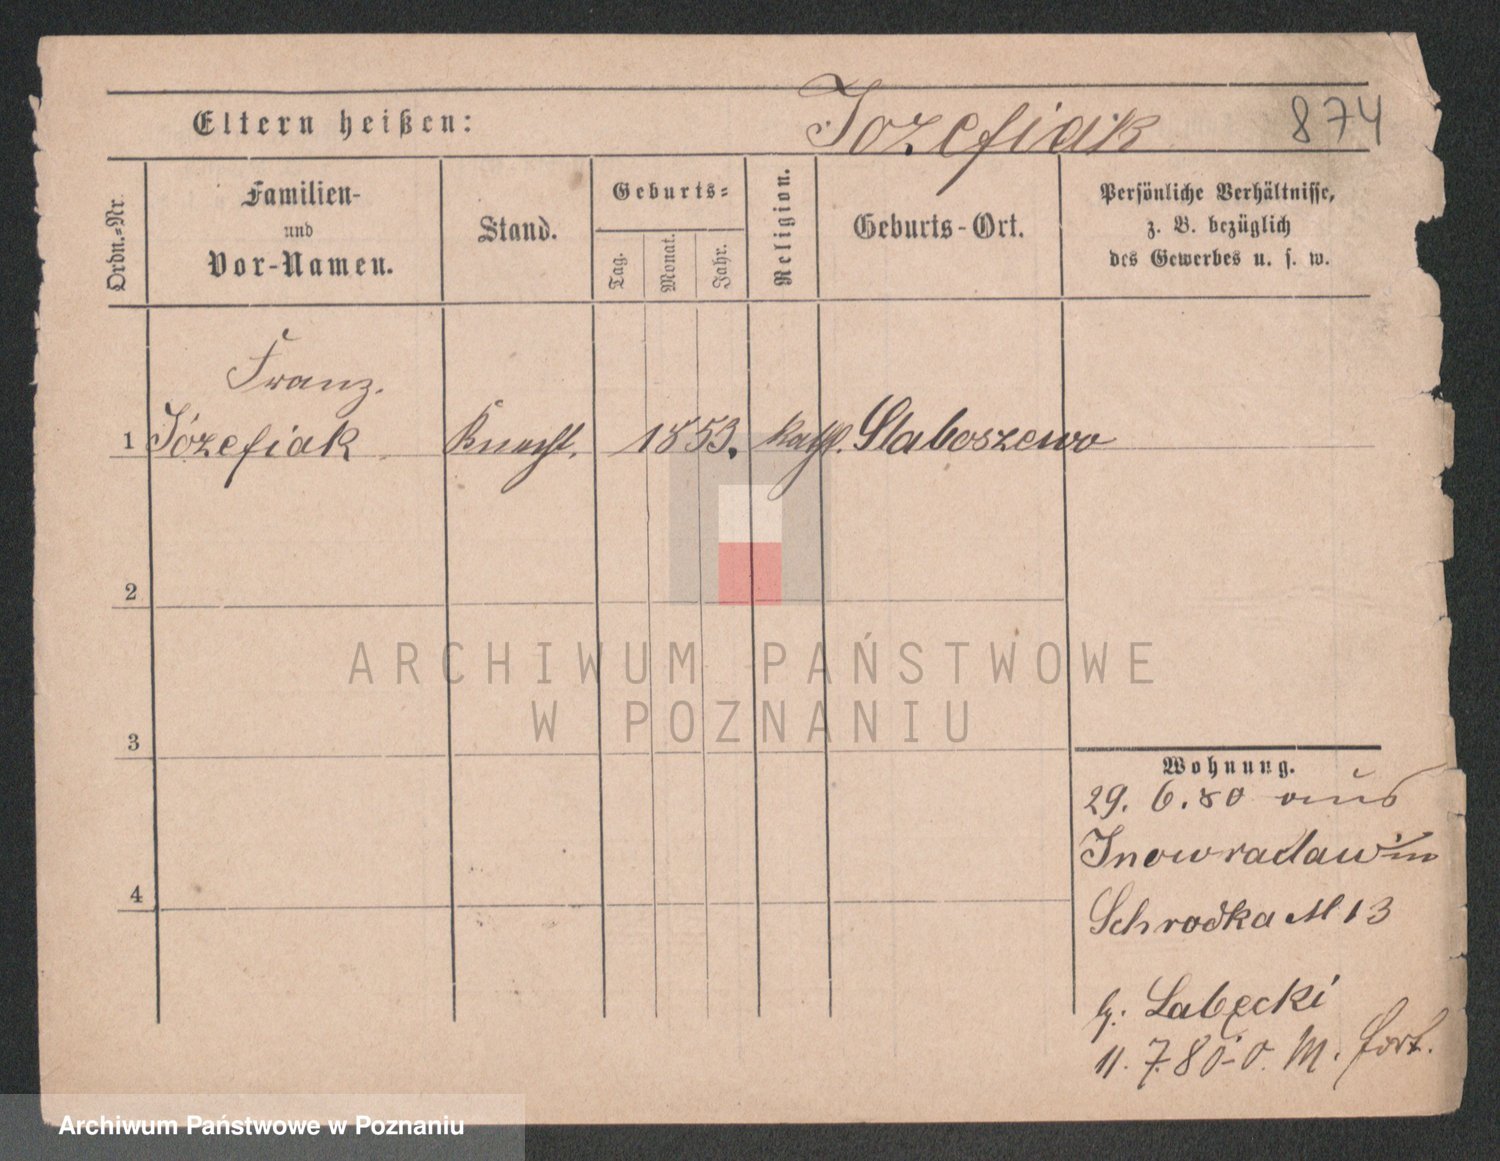 Eltern heißen: Jozefiak 874
Ordn.=Nr.
Familien-
und
Vor-Namen.
Stand.
Geburts=
Tag.
Monat.
Jahr.
Religion.
Geburts-Ort.
Persönliche Verhältnisse,
z. B. bezüglich
des Gewerbes u. s. w.
Franz.
1 Józefiak Knecht. 1853. kath. Slaboszewo
2
3
4
ARCHIWUM PAŃSTWOWE
W POZNANIU
Wohnung.
29. 6. 80 aus
Inowradaw in
Schrodka N 13
b. Labęcki
11. 7. 80 - O. M. fort.
Archiwum Państwowe w Poznaniu